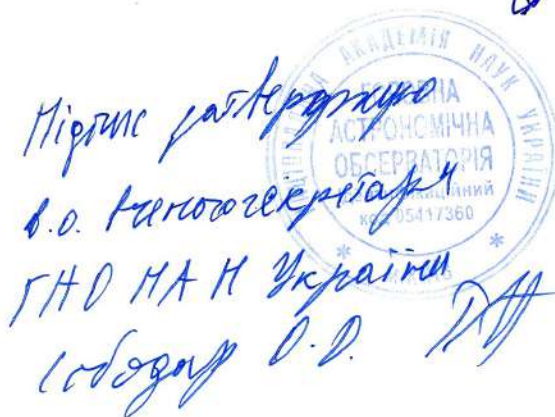 Підпис затверджую
в.о. вченого секретаря
ГАО НАН України
О.О.
НАЦІОНАЛЬНА АКАДЕМІЯ НАУК УКРАЇНИ
ГОЛОВНА
АСТРОНОМІЧНА
ОБСЕРВАТОРІЯ
Ідентифікаційний
код 05417360